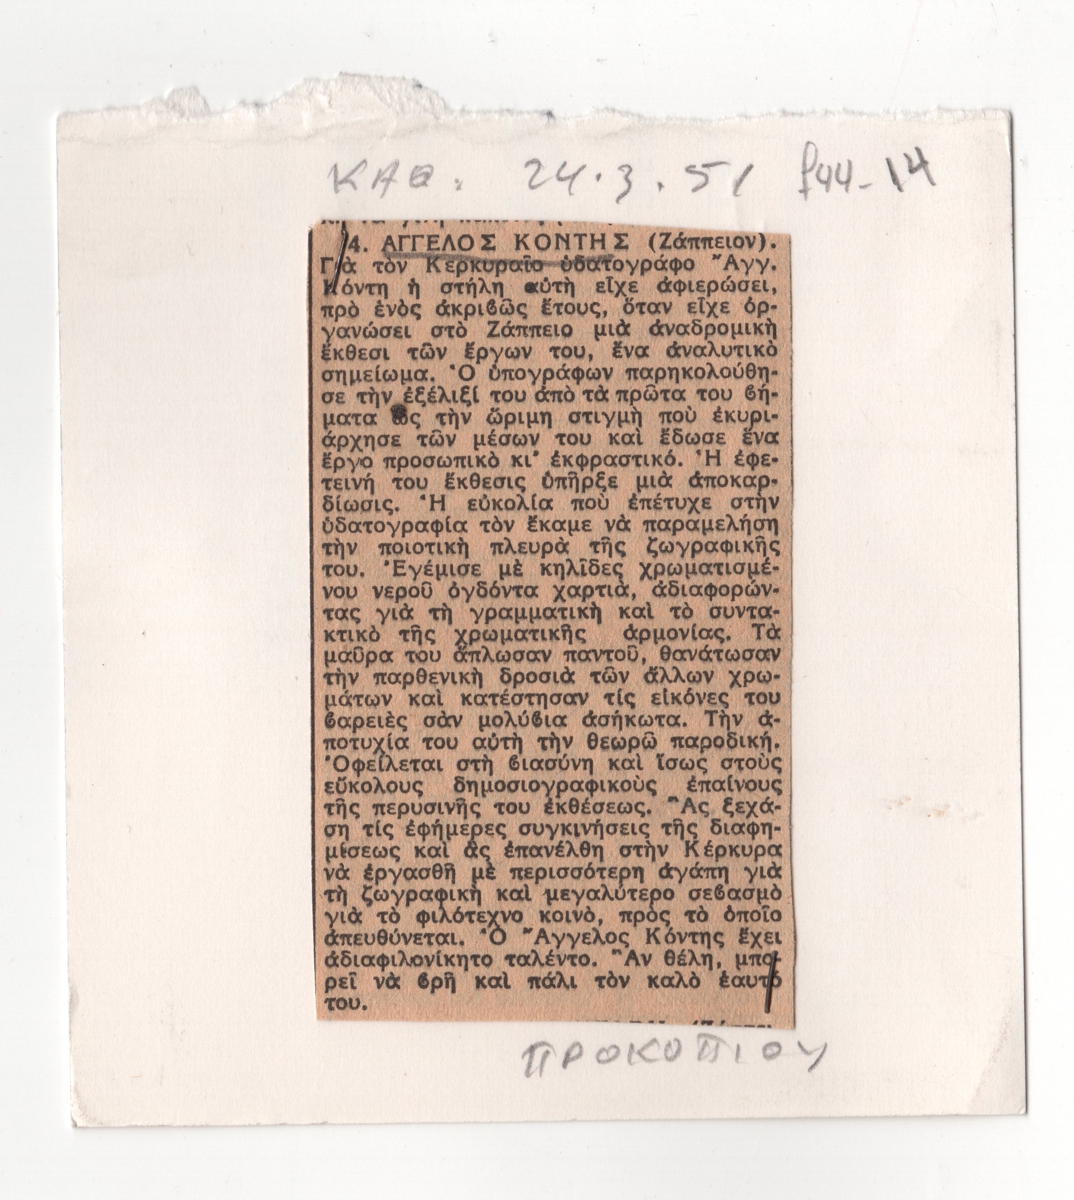 ΚΑΘ. 24.3.51 f44-14
4. ΑΓΓΕΛΟΣ ΚΟΝΤΗΣ (Ζάππειον).
Γιὰ τὸν Κερκυραῖο ὑδατογράφο Ἄγγ.
Κόντη ἡ στήλη αὐτὴ εἶχε ἀφιερώσει,
πρὸ ἑνὸς ἀκριβῶς ἔτους, ὅταν εἶχε ὀρ-
γανώσει στὸ Ζάππειο μιὰ ἀναδρομικὴ
ἔκθεσι τῶν ἔργων του, ἕνα ἀναλυτικὸ
σημείωμα. Ὁ ὑπογράφων παρηκολούθη-
σε τὴν ἐξέλιξί του ἀπὸ τὰ πρῶτα του βή-
ματα ὣς τὴν ὥριμη στιγμὴ ποὺ ἐκυρι-
άρχησε τῶν μέσων του καὶ ἔδωσε ἕνα
ἔργο προσωπικὸ κι' ἐκφραστικό. Ἡ ἐφε-
τεινή του ἔκθεσις ὑπῆρξε μιὰ ἀποκαρ-
δίωσις. Ἡ εὐκολία ποὺ ἐπέτυχε στὴν
ὑδατογραφία τὸν ἔκαμε νὰ παραμελήση
τὴν ποιοτικὴ πλευρὰ τῆς ζωγραφικῆς
του. Ἐγέμισε μὲ κηλῖδες χρωματισμέ-
νου νεροῦ ὀγδόντα χαρτιά, ἀδιαφορών-
τας γιὰ τὴ γραμματικὴ καὶ τὸ συντα-
κτικὸ τῆς χρωματικῆς ἁρμονίας. Τὰ
μαῦρα του ἅπλωσαν παντοῦ, θανάτωσαν
τὴν παρθενικὴ δροσιὰ τῶν ἄλλων χρω-
μάτων καὶ κατέστησαν τίς εἰκόνες του
βαρειὲς σὰν μολύβια ἀσήκωτα. Τὴν ἀ-
ποτυχία του αὐτὴ τὴν θεωρῶ παροδική.
Ὀφείλεται στὴ βιασύνη καὶ ἴσως στοὺς
εὔκολους δημοσιογραφικοὺς ἐπαίνους
τῆς περυσινῆς του ἐκθέσεως. Ἂς ξεχά-
ση τίς ἐφήμερες συγκινήσεις τῆς διαφη-
μίσεως καὶ ἂς ἐπανέλθη στὴν Κέρκυρα
νὰ ἐργασθῆ μὲ περισσότερη ἀγάπη γιὰ
τὴ ζωγραφικὴ καὶ μεγαλύτερο σεβασμὸ
γιὰ τὸ φιλότεχνο κοινὸ, πρὸς τὸ ὁποῖο
ἀπευθύνεται. Ὁ Ἄγγελος Κόντης ἔχει
ἀδιαφιλονίκητο ταλέντο. Ἂν θέλη, μπο-
ρεῖ νὰ βρῆ καὶ πάλι τὸν καλὸ ἑαυτό
του.
ΠΡΟΚΟΠΙΟΥ